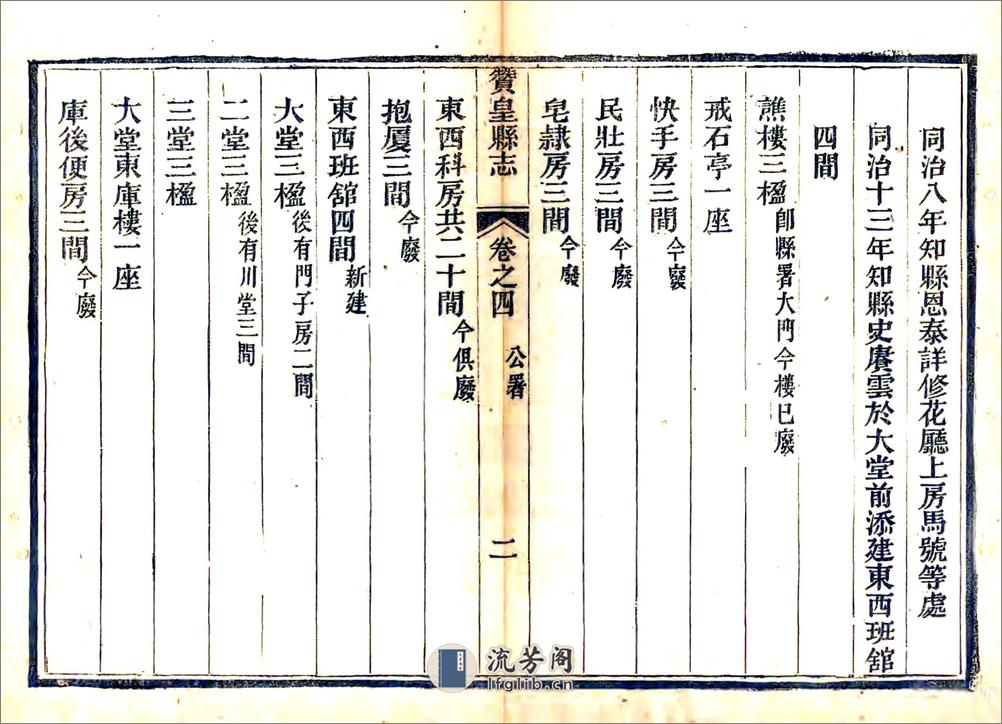 同治八年知縣恩泰詳修花廳上房馬號等處
同治十三年知縣史賡雲於大堂前添建東西班舘
四間
譙樓三楹 卽縣署大門今樓已廢
戒石亭一座
快手房三間 今廢
民壯房三間 今廢
皂隷房三間 今廢
贊皇縣志 卷之四 公署 二
東西科房共二十間 今俱廢
抱厦三間 今廢
東西班舘四間 新建
大堂三楹 後有門子房二間
二堂三楹 後有川堂三間
三堂三楹
大堂東庫樓一座
庫後便房三間 今廢
流芳阁
lfglib.cn